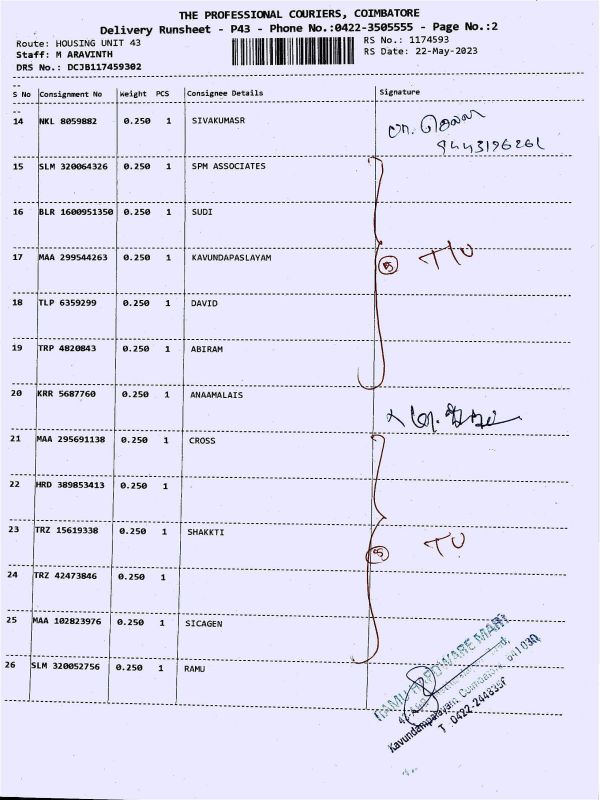 THE PROFESSIONAL COURIERS, COIMBATORE
Delivery Runsheet - P43 - Phone No.:0422-3505555 - Page No.:2
Route: HOUSING UNIT 43
RS No.: 1174593
Staff: M ARAVINTH
RS Date: 22-May-2023
DRS No.: DCJB117459302
S No Consignment No Weight PCS Consignee Details Signature
14 NKL 8059882 0.250 1 SIVAKUMASR
15 SLM 320064326 0.250 1 SPM ASSOCIATES
16 BLR 1600951350 0.250 1 SUDI
17 MAA 299544263 0.250 1 KAVUNDAPASLAYAM
5 T/U
18 TLP 6359299 0.250 1 DAVID
19 TRP 4820843 0.250 1 ABIRAM
20 KRR 5687760 0.250 1 ANAAMALAIS
21 MAA 295691138 0.250 1 CROSS
22 HRD 389853413 0.250 1
23 TRZ 15619338 0.250 1 SHAKKTI
5 TU
24 TRZ 42473846 0.250 1
25 MAA 102823976 0.250 1 SICAGEN
26 SLM 320052756 0.250 1 RAMU
RAMU HARDWARE MART
Kavundampalayam, Coimbatore 641 030